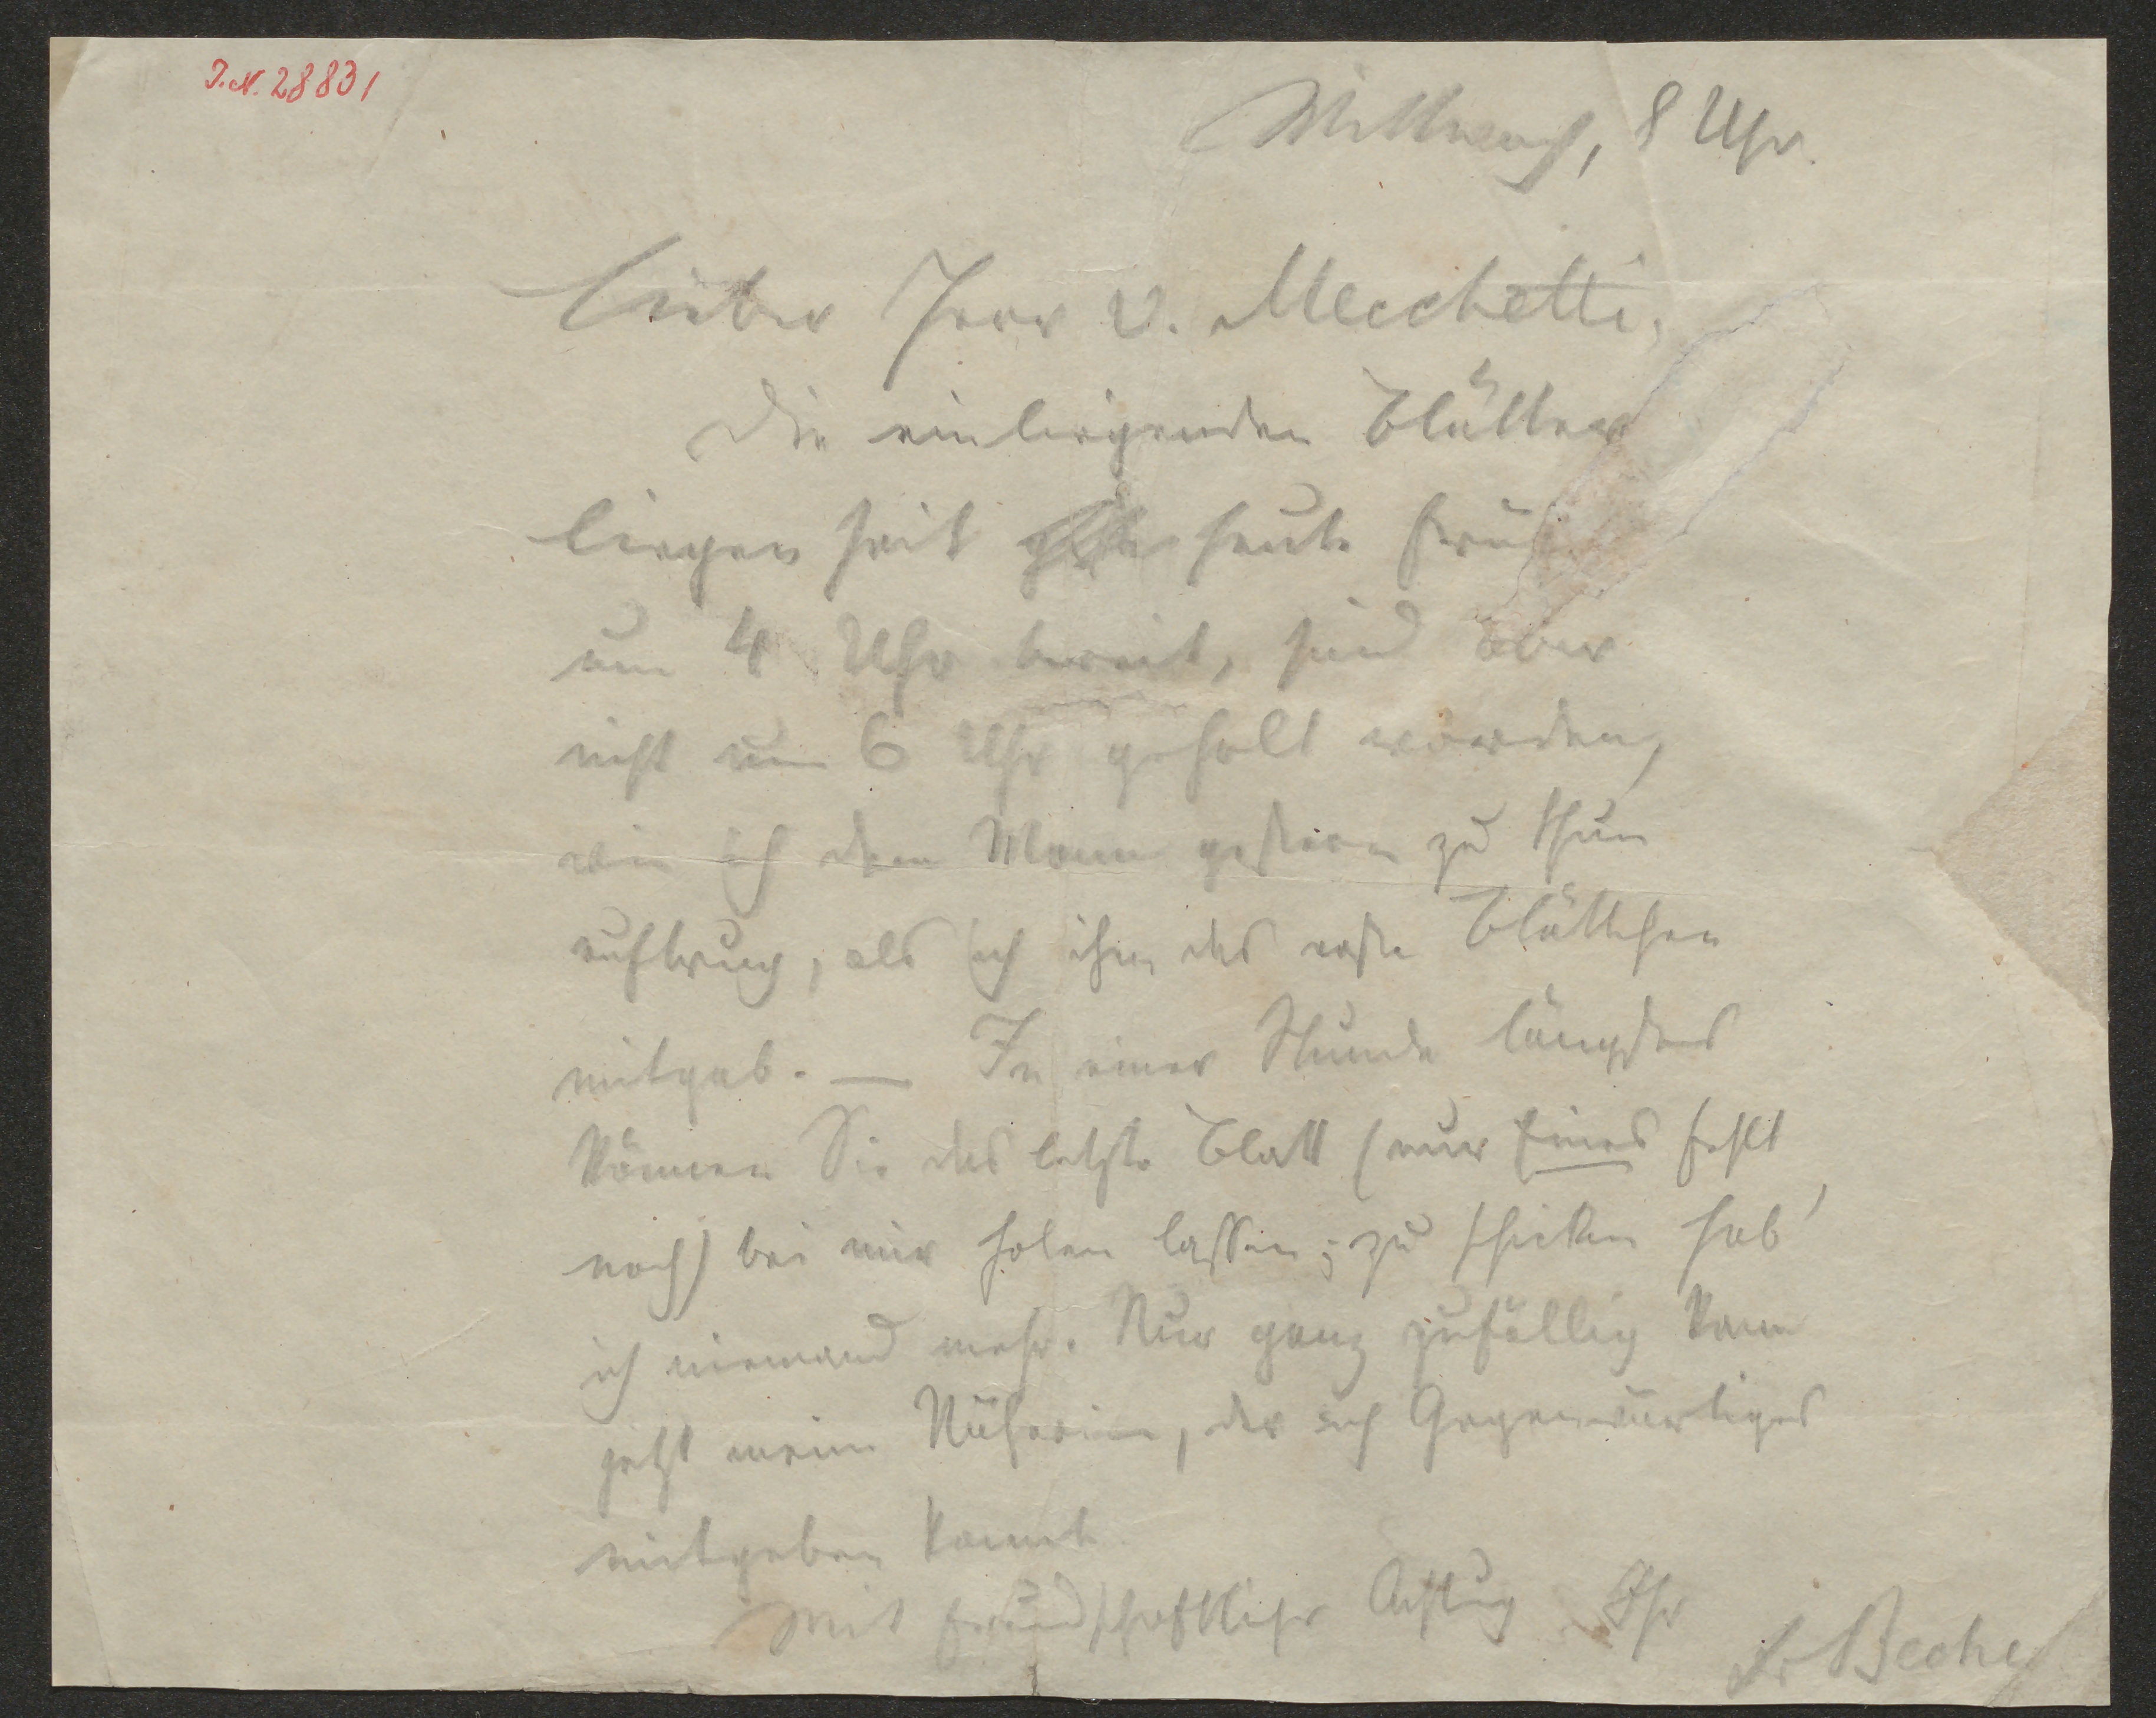 I.N. 28831
Mittwoch, 8 Uhr.
Lieber Herr v. Mecchetti,
Die einliegenden Blätter
liegen seit heute früh
um 4 Uhr bereit, sind aber
nicht um 6 Uhr geholt worden,
wie ich dem Mann gestern zu thun
auftrug, als ich ihm das erste Blättchen
mitgab. — In einer Stunde längstens
können Sie das letzte Blatt (nur Eines fehlt
noch) bei mir holen lassen; zu schicken hab'
ich niemand mehr. Nur ganz zufällig kam
jetzt meine Näherin, der ich Gegenwärtiges
mitgeben konnte.
Mit freundschaftlicher Achtung Ihr
Becher